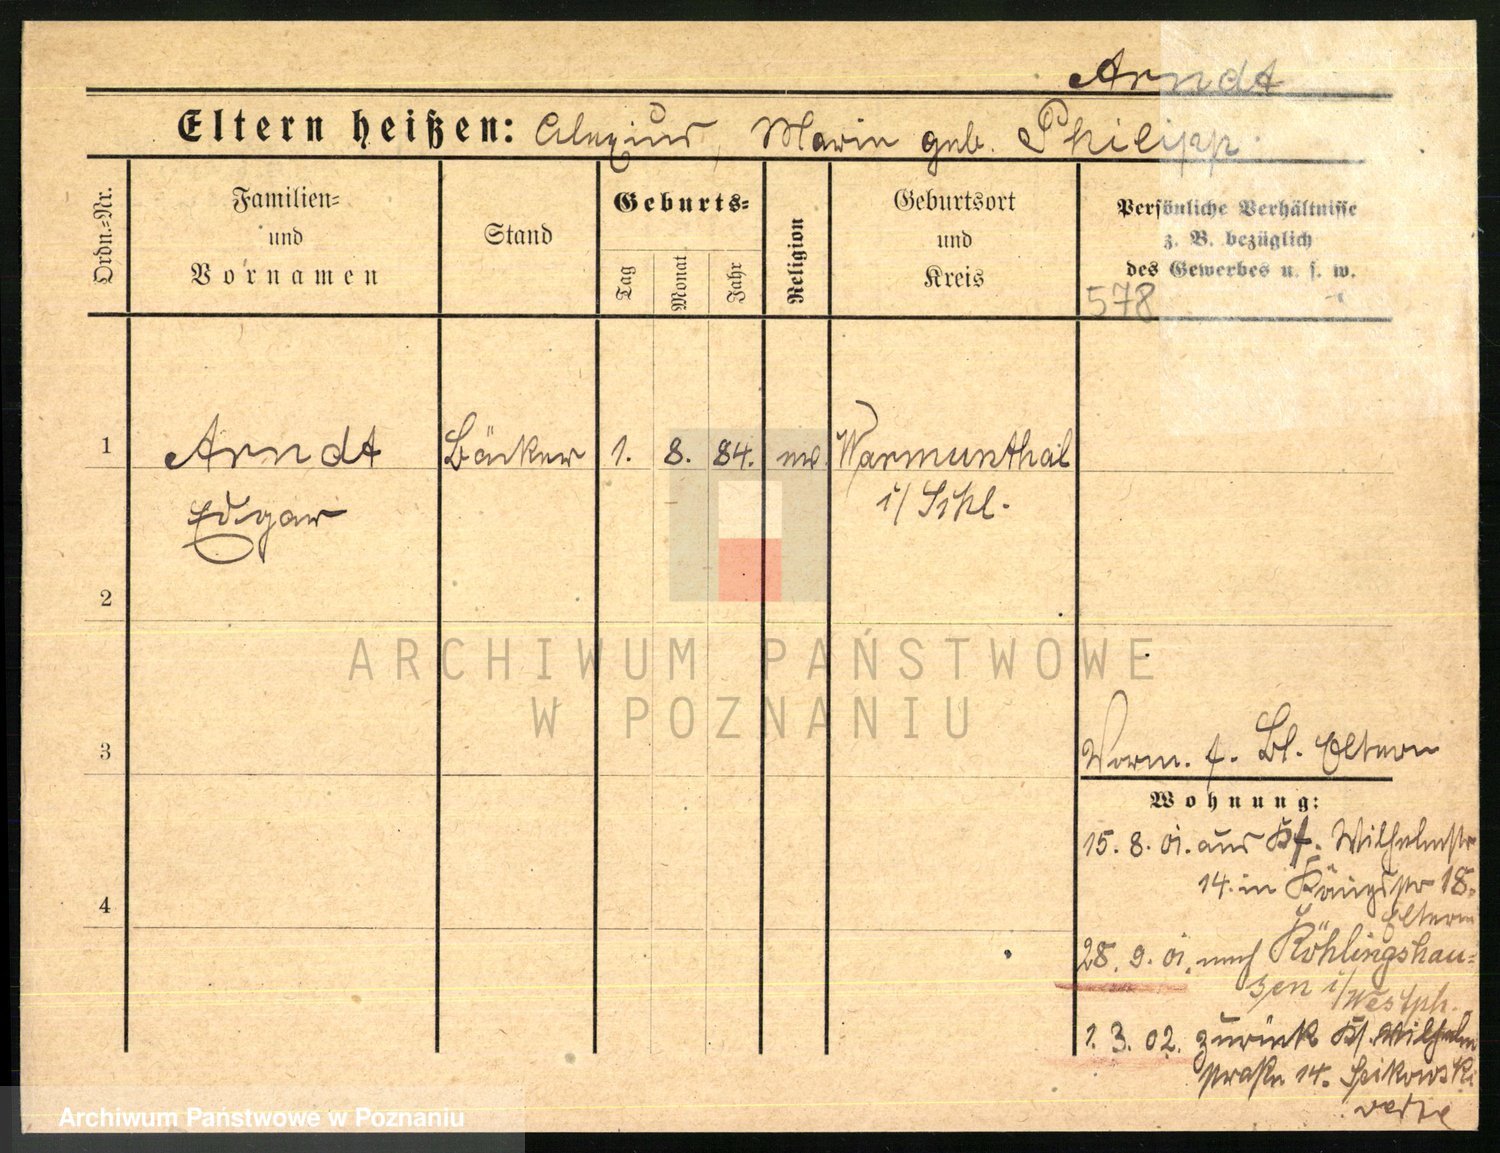 Arndt
Eltern heißen: Alexius, Marie geb. Philipp.
Ordn.=Nr.
Familien=
und
Vornamen
Stand
Geburts=
Tag
Monat
Jahr
Religion
Geburtsort
und
Kreis
Persönliche Verhältnisse
z. B. bezüglich
des Gewerbes u. s. w.
578
1 Arndt Bäcker 1. 8. 84. ev. Warmunthal
Edgar i/ Schl.
2
ARCHIWUM PAŃSTWOWE
W POZNANIU
3
Vorm. f. Bl. Eltern
Wohnung:
15. 8. 01. aus Kl. Wilhelmstr
14. in Königstr 18.
Eltern
4
28. 9. 01. nach Röhlingshau=
sen i/Westph.
1. 3. 02. zurück Kl. Wilhelm
straße 14. Spikowski
verte
Archiwum Państwowe w Poznaniu